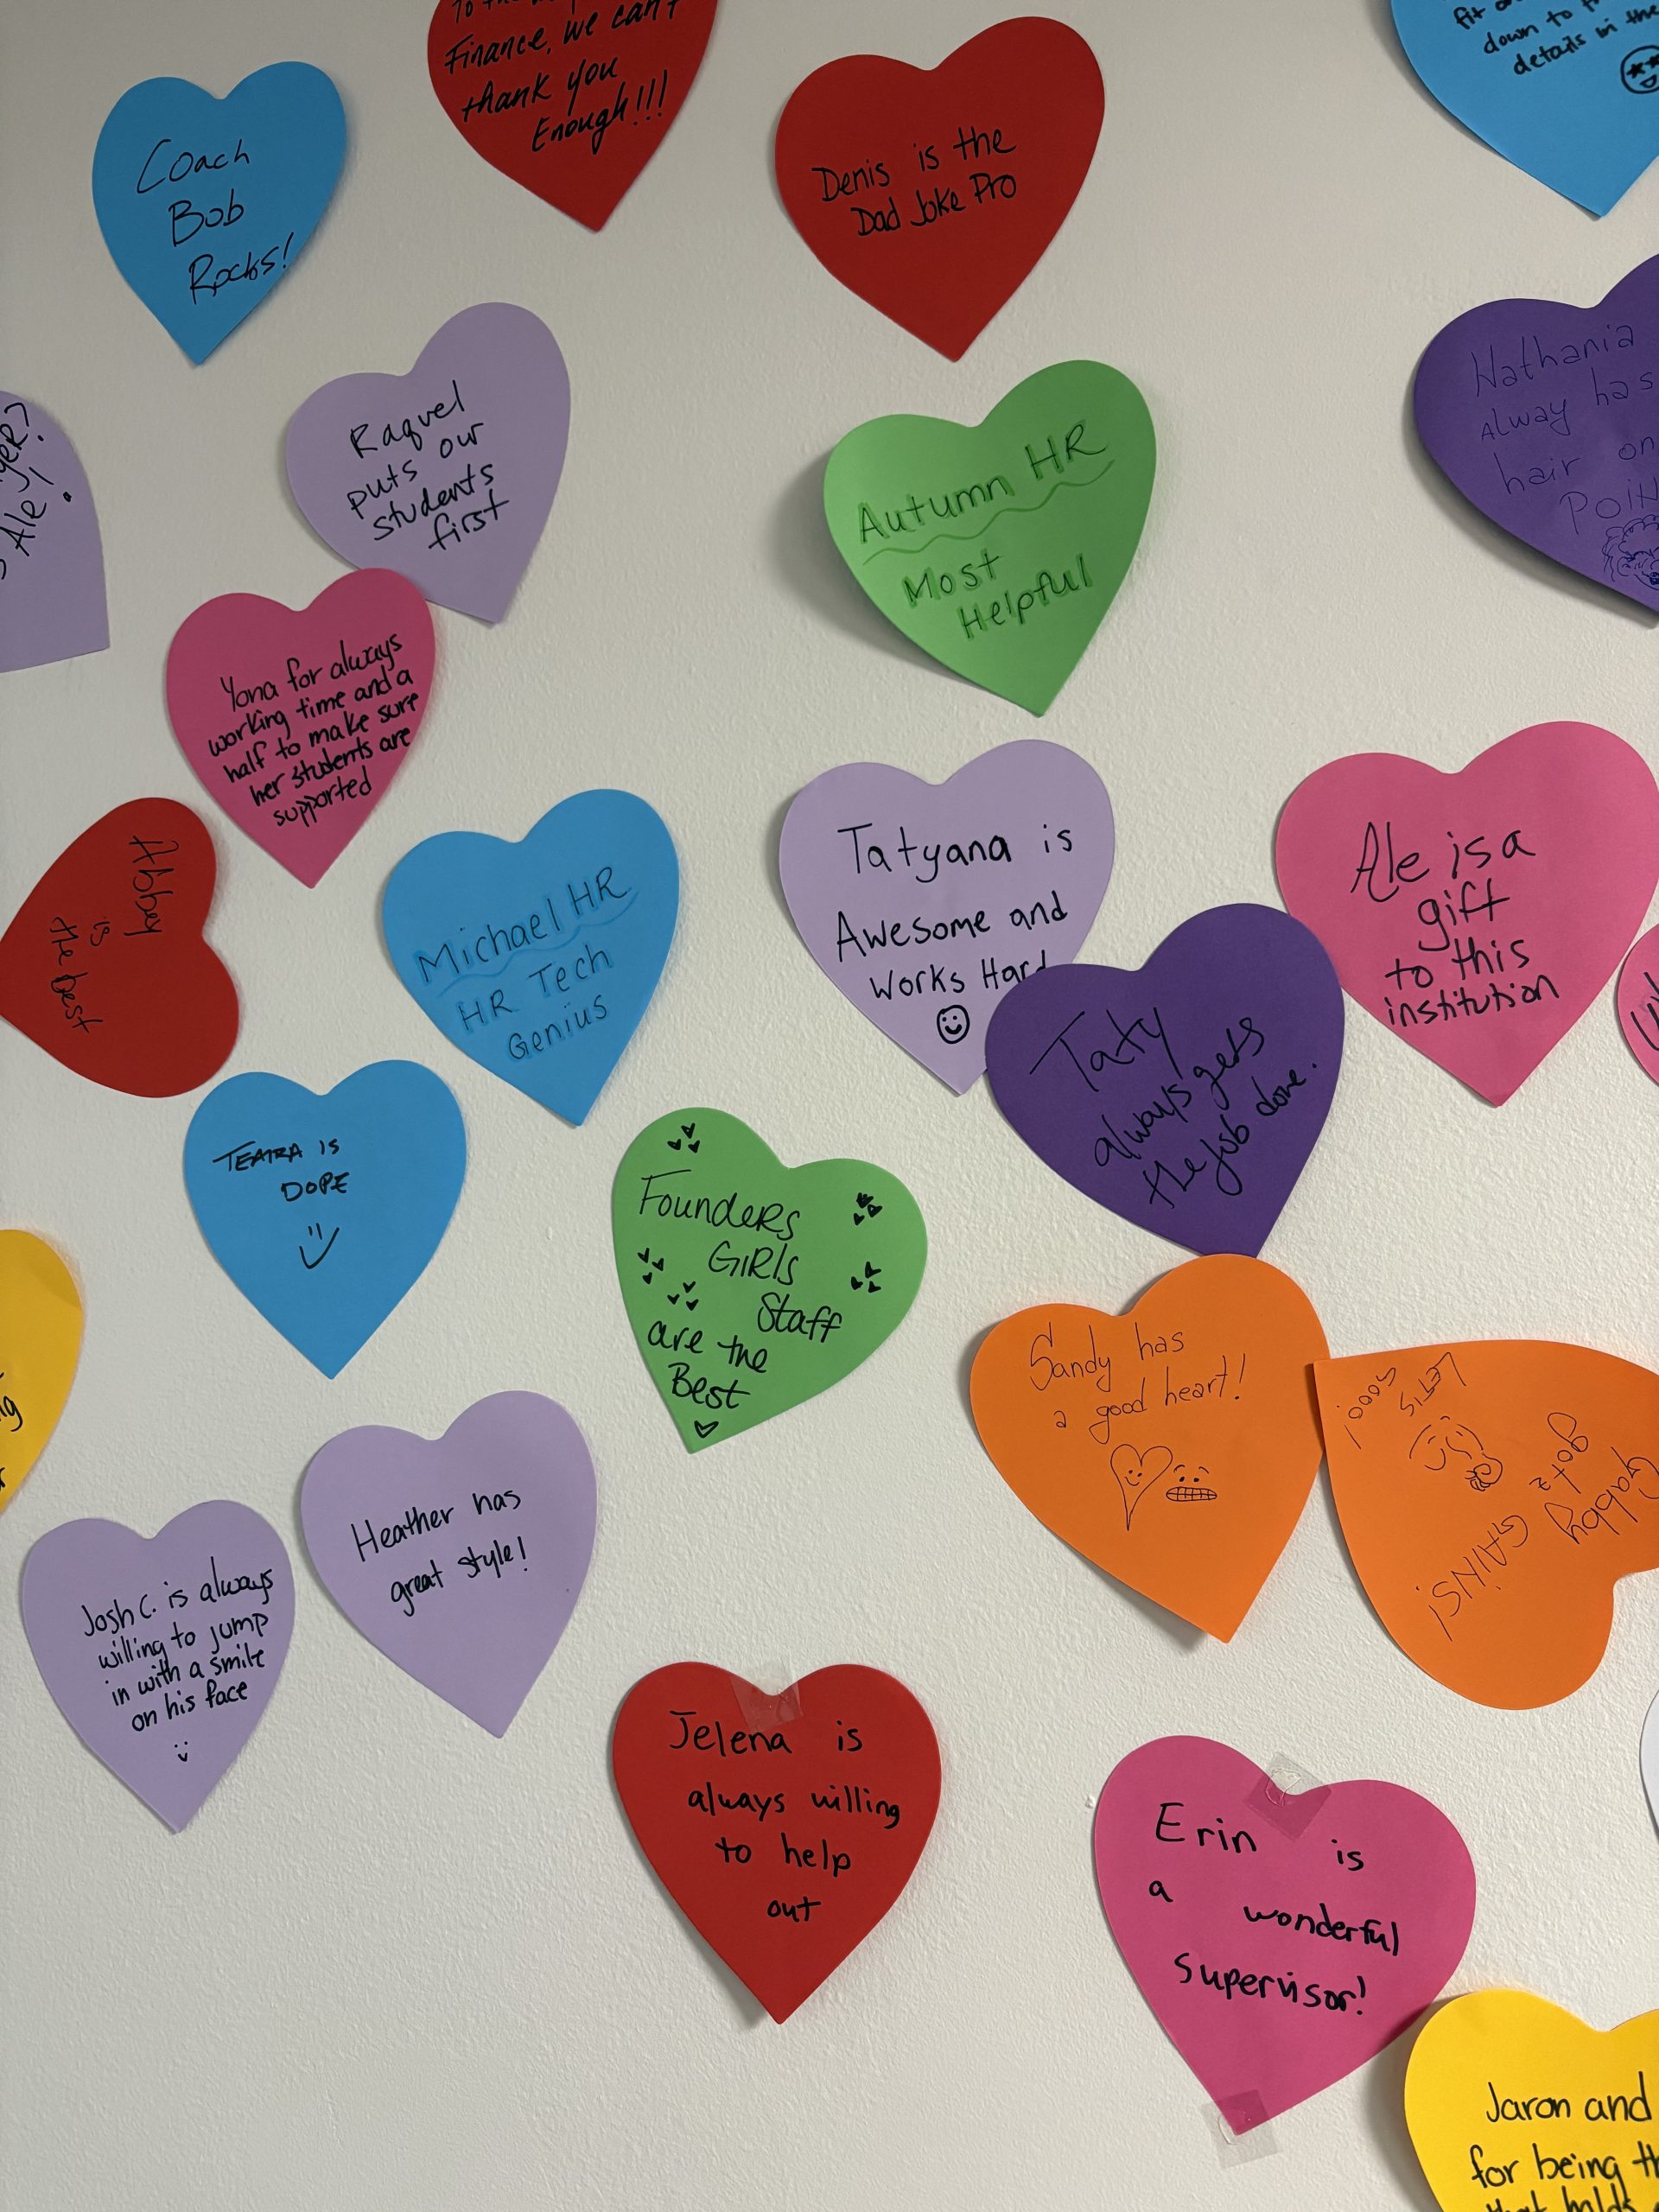 Finance, we can't
thank you
Enough!!!
Coach
Bob
Rocks!
Denis is the
Dad Joke Pro
down to
details in the
Raquel
puts our
students
first
Autumn HR
Most
Helpful
Nathania
Alway has
hair on
Ale!
Yona for always
working time and a
half to make sure
her students are
supported
Abbey
is
the best
Michael HR
HR Tech
Genius
Tatyana is
Awesome and
Works Hard
Taty
always gets
the job done.
Ale is a
gift
to this
institution
TEAIRA IS
DOPE
Founders
GIRls
Staff
are the
Best
Sandy has
a good heart!
Gabby
got z
GAINS!
LET'S
gooo!
Heather has
great style!
Josh C. is always
willing to jump
in with a smile
on his face
Jelena is
always willing
to help
out
Erin is
a wonderful
Supervisor!
Jaron and
for being